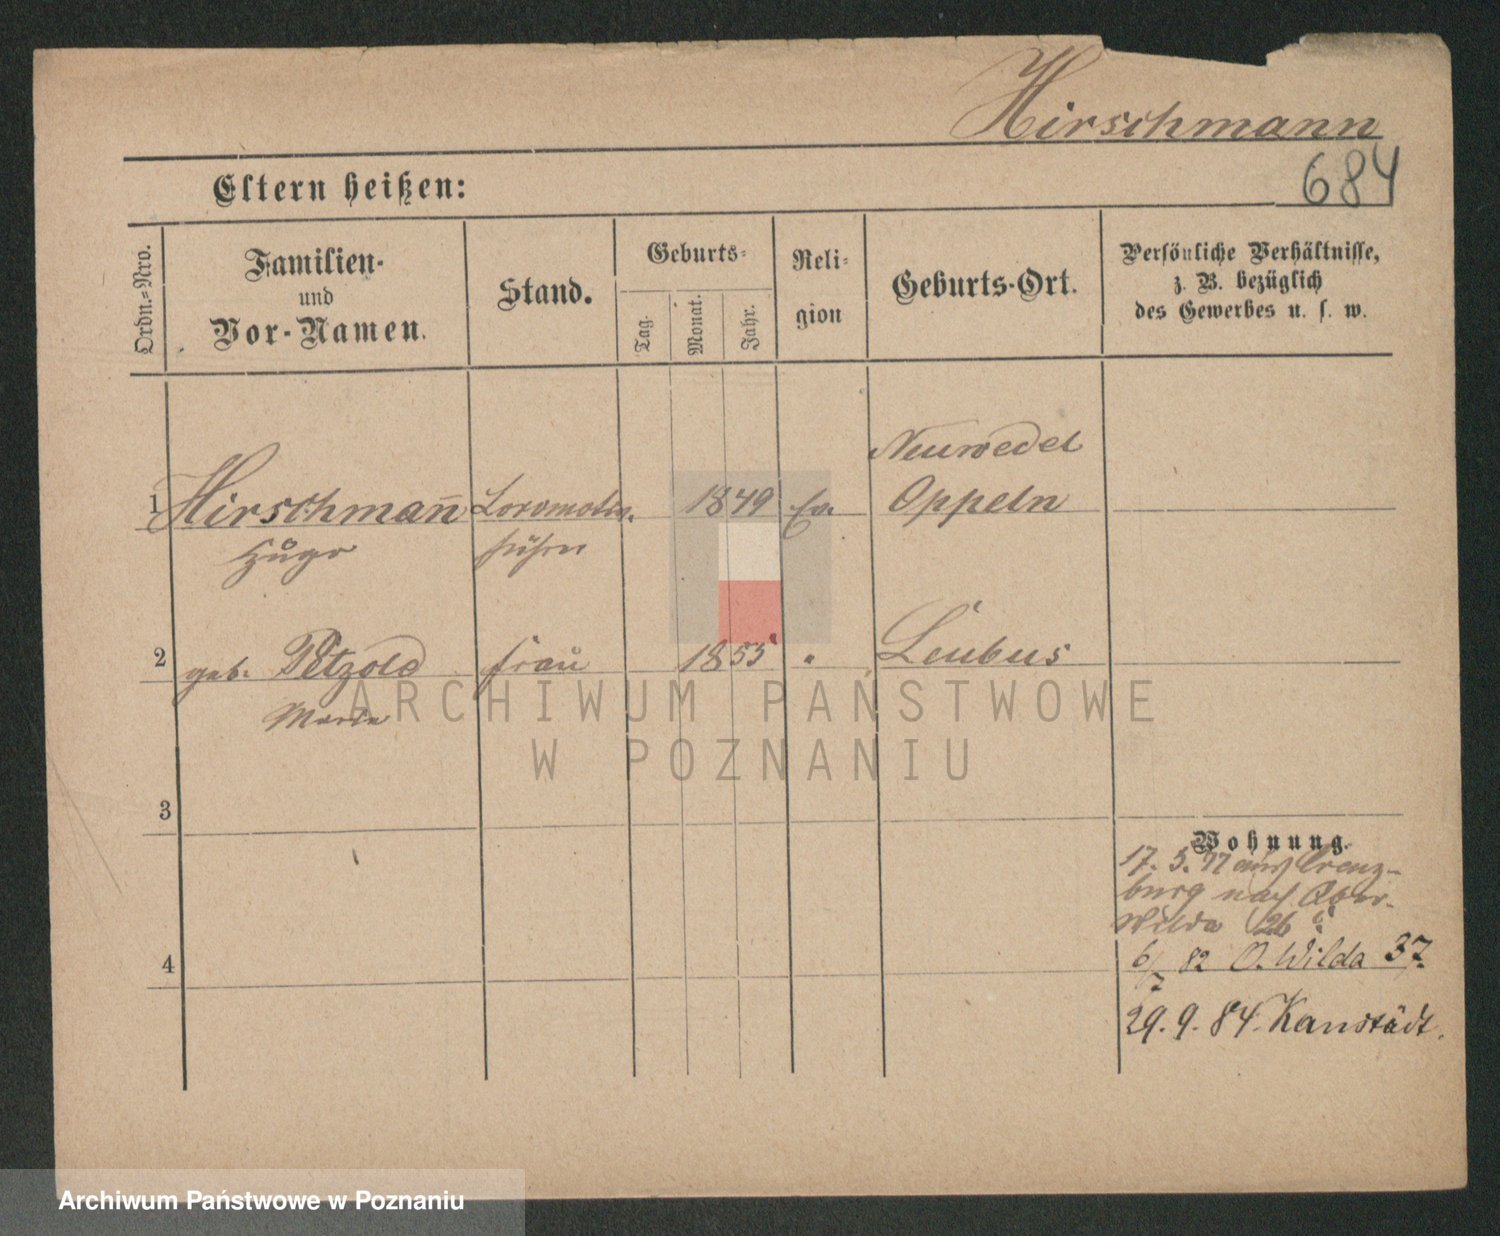 Hirschmann
684
Eltern heißen:
Ordn.-Nro.
Familien-
und
Vor-Namen.
Stand.
Geburts-
Tag.
Monat.
Jahr.
Reli-
gion
Geburts-Ort.
Persönliche Verhältnisse,
z. B. bezüglich
des Gewerbes u. s. w.
Neuwedel
1 Hirschmañ Locomotiv. 1849 Ev. Oppeln
Hugo führer
2 geb. Petzold Frau 1855 " Leubus
Marie
3
Wohnung.
17. 5. 77 aus Creuz-
burg nach Ober-
Wilda 26
4
6/7 82 O. Wilda 37.
29. 9. 84. Kanstädt.
ARCHIWUM PAŃSTWOWE
W POZNANIU
Archiwum Państwowe w Poznaniu